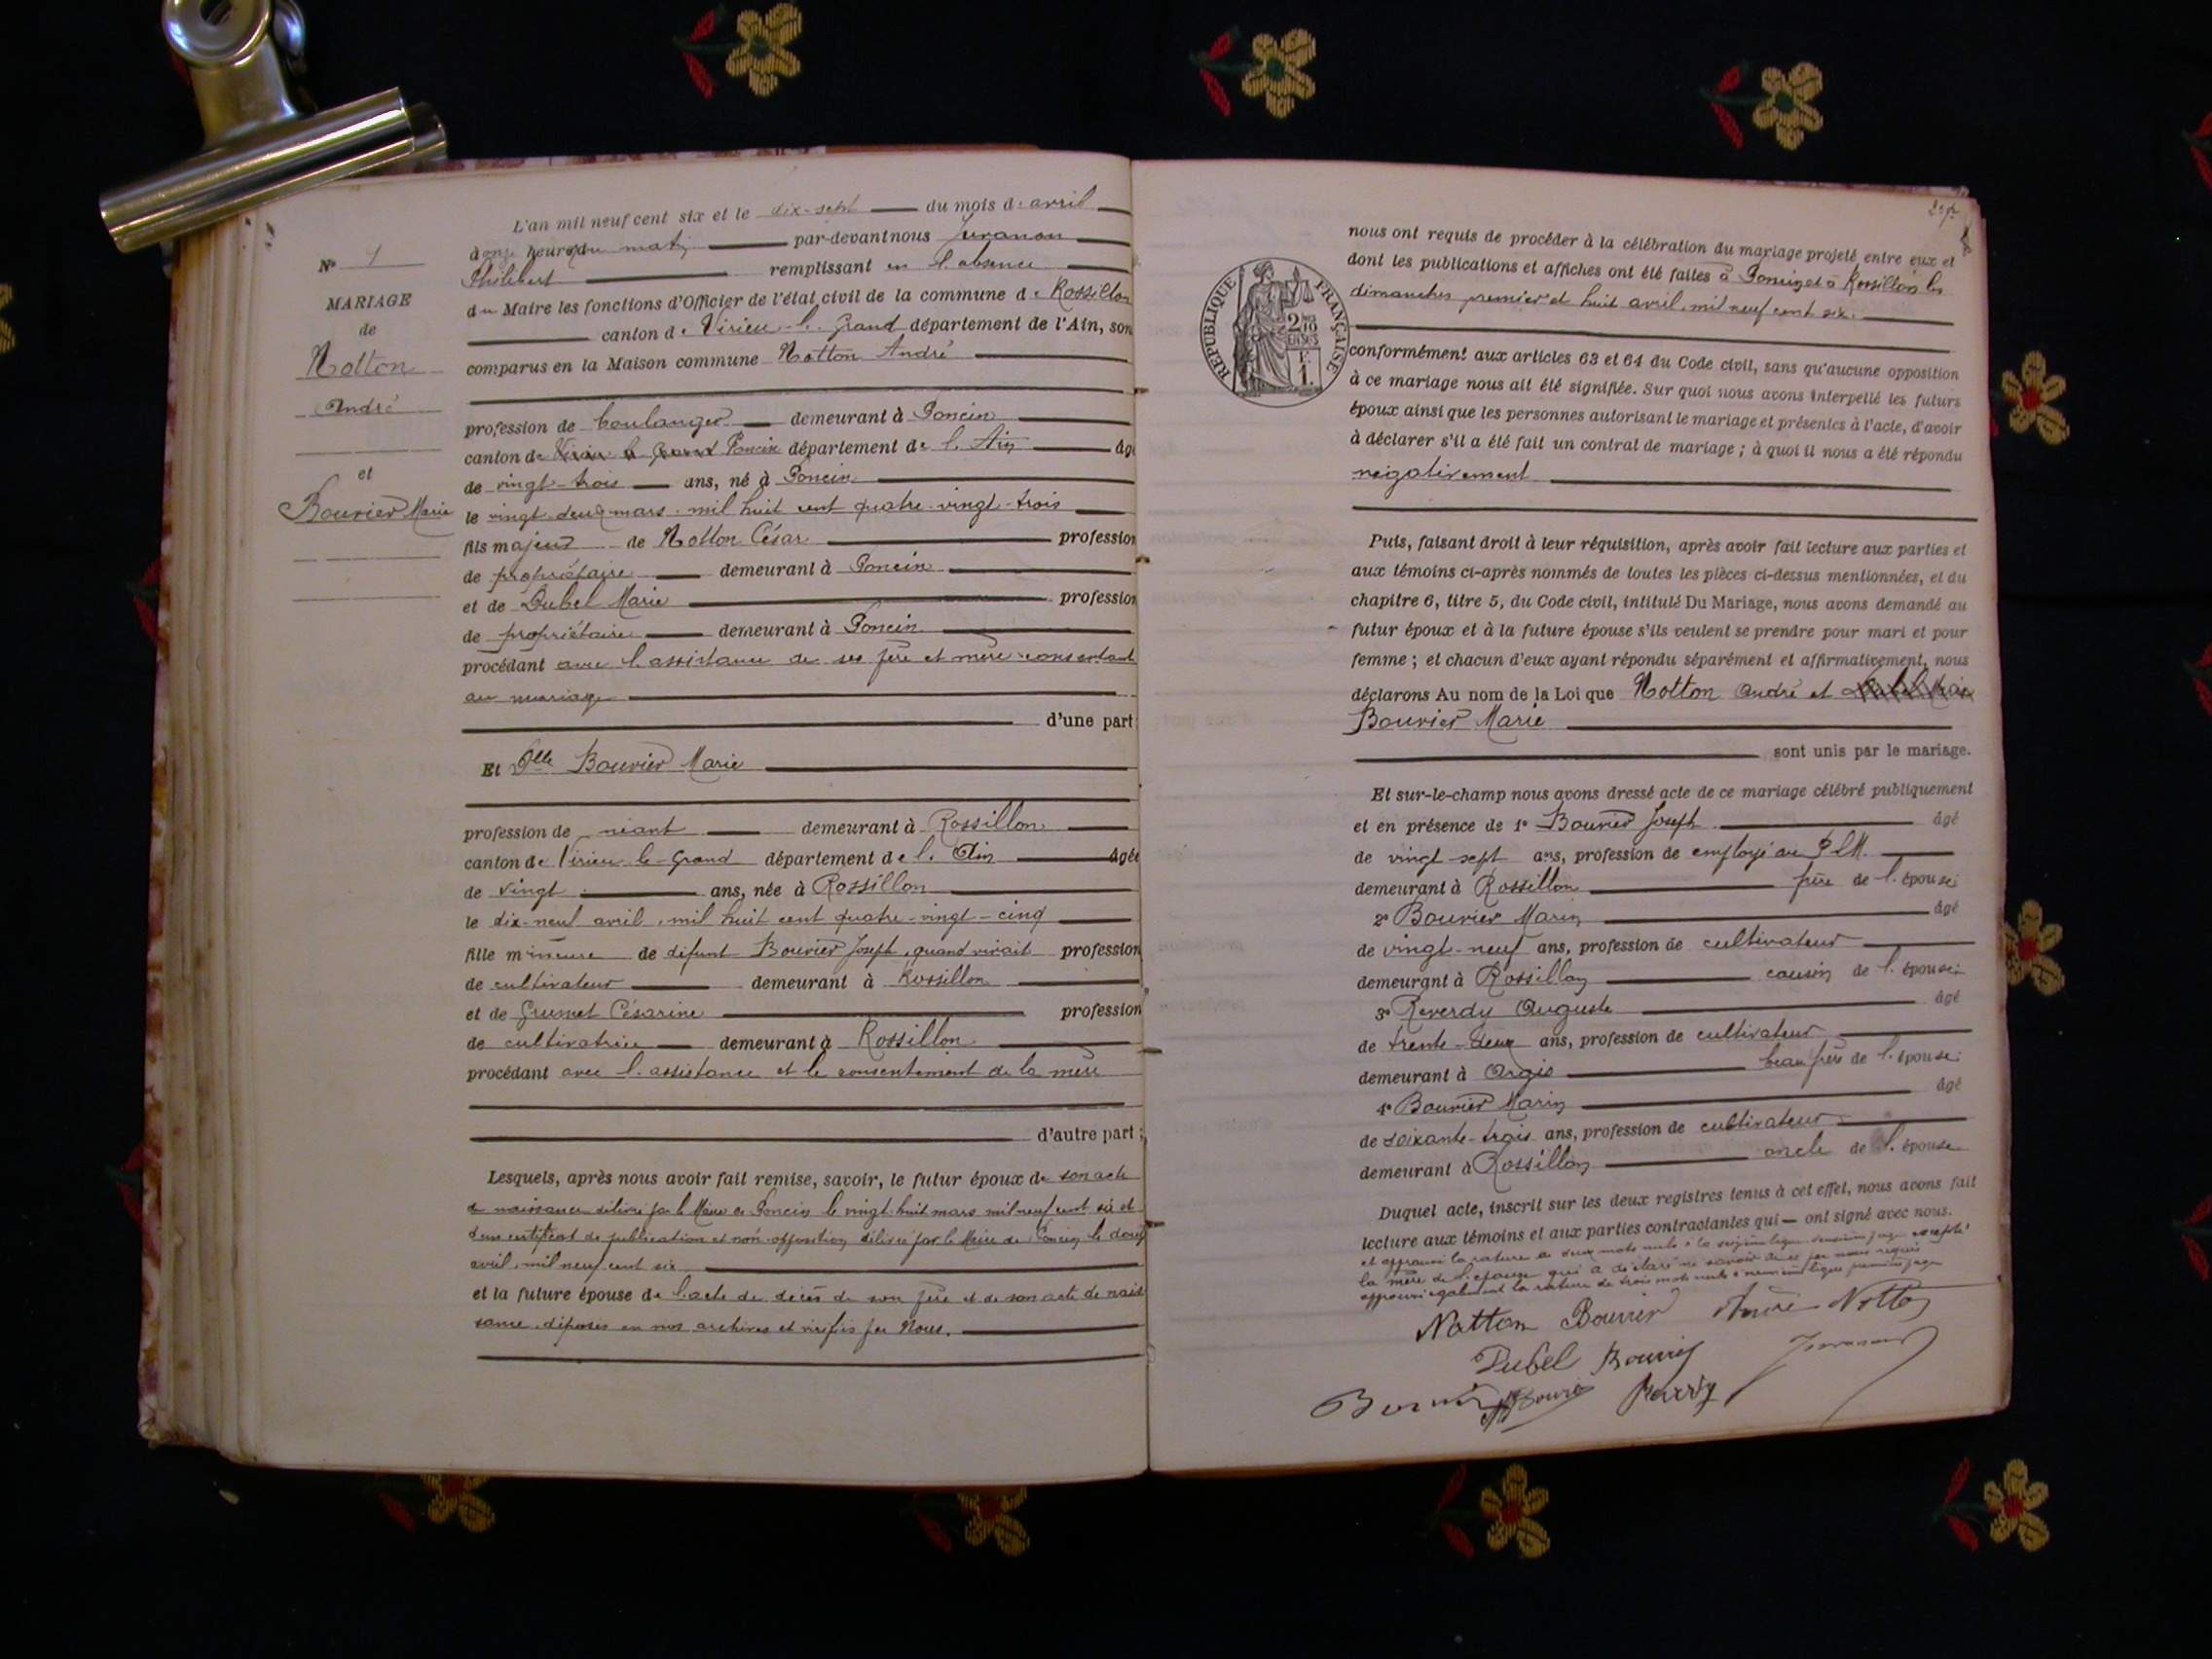 L'an mil neuf cent six et le dix-sept du mois d. avril
à onze heures du matin par-devant nous Juranon
Philibert remplissant en l'absence
du Maire les fonctions d'Officier de l'état civil de la commune de Rossillon
canton de Virieu-le-Grand département de l'Ain, son
comparus en la Maison commune Notton André
profession de boulanger demeurant à Poncin
canton de Virieu le Grand Poncin département de l'Ain âgé
de vingt-trois ans, né à Poncin
le vingt-deux mars mil huit cent quatre-vingt-trois
fils majeur de Notton César profession
de propriétaire demeurant à Poncin
et de Dubel Marie profession
de propriétaire demeurant à Poncin
procédant avec l'assistance de ses père et mère consentant
au mariage
d'une part
N° 1
MARIAGE
de
Notton
André
et
Bouvier Marie
Et Dlle Bouvier Marie
profession de néant demeurant à Rossillon
canton de Virieu-le-Grand département de l'Ain âgée
de vingt ans, née à Rossillon
le dix-neuf avril mil huit cent quatre-vingt-cinq
fille mineure de défunt Bouvier Joseph, quand vivait profession
de cultivateur demeurant à Rossillon
et de Grumet Césarine profession
de cultivatrice demeurant à Rossillon
procédant avec l'assistance et le consentement de la mère
d'autre part ;
Lesquels, après nous avoir fait remise, savoir, le futur époux de son acte
de naissance délivré par le Maire de Poncin le vingt-huit mars mil neuf cent six et
d'un certificat de publication et non-opposition délivré par le Maire de Poncin le douze
avril, mil neuf cent six
et la future épouse de l'acte de décès de son père et de son acte de nais
sance, déposés en nos archives et vérifiés par Nous.
nous ont requis de procéder à la célébration du mariage projeté entre eux et
dont les publications et affiches ont été faites à Poncin et à Rossillon les
dimanches premier et huit avril mil neuf cent six.
RÉPUBLIQUE FRANÇAISE
2/10
EN SUS
1 F.
conformément aux articles 63 et 64 du Code civil, sans qu'aucune opposition
à ce mariage nous ait été signifiée. Sur quoi nous avons interpellé les futurs
époux ainsi que les personnes autorisant le mariage et présentes à l'acte, d'avoir
à déclarer s'il a été fait un contrat de mariage ; à quoi il nous a été répondu
négativement
Puis, faisant droit à leur réquisition, après avoir fait lecture aux parties et
aux témoins ci-après nommés de toutes les pièces ci-dessus mentionnées, et du
chapitre 6, titre 5, du Code civil, intitulé Du Mariage, nous avons demandé au
futur époux et à la future épouse s'ils veulent se prendre pour mari et pour
femme ; et chacun d'eux ayant répondu séparément et affirmativement, nous
déclarons Au nom de la Loi que Notton André et Dubel Marie
Bouvier Marie
sont unis par le mariage.
Et sur-le-champ nous avons dressé acte de ce mariage célébré publiquement
et en présence de 1° Bouvier Joseph âgé
de vingt-sept ans, profession de employé au P.L.M.
demeurant à Rossillon frère de l'épouse
2° Bouvier Marin âgé
de vingt-neuf ans, profession de cultivateur
demeurant à Rossillon cousin de l'épouse
3° Reverdy Auguste âgé
de trente-deux ans, profession de cultivateur
demeurant à Argis beau frère de l'épouse
4° Bouvier Marin âgé
de soixante-trois ans, profession de cultivateur
demeurant à Rossillon oncle de l'épouse
Duquel acte, inscrit sur les deux registres tenus à cet effet, nous avons fait
lecture aux témoins et aux parties contractantes qui — ont signé avec nous.
et approuvé la rature de deux mots nuls à la seizième ligne deuxième page excepté
la mère de l'épouse qui a déclaré ne savoir de ce par nous requis
approuvé également la rature de trois mots nuls à neuvième ligne première page
Notton Bouvier André Notton
Dubel Bouvier Juranon